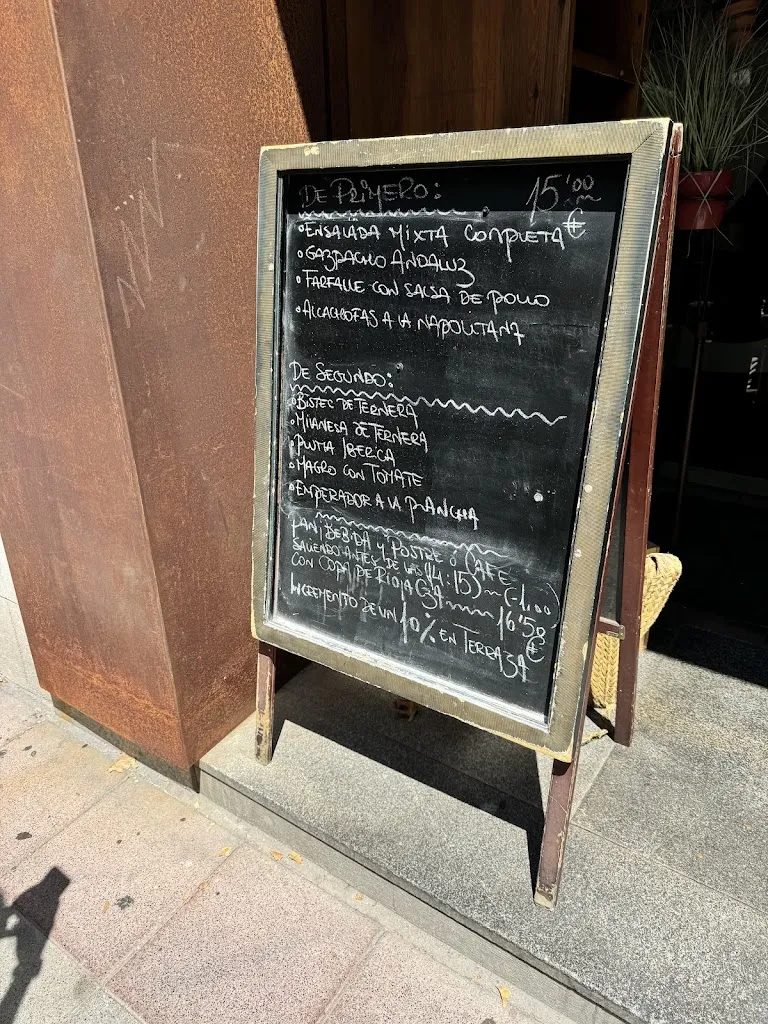 DE PRIMERO: 15'00 €
•ENSALADA MIXTA COMPLETA
•GAZPACHO ANDALUZ
•FARFALLE CON SALSA DE POLLO
•ALCACHOFAS A LA NAPOLITANA
DE SEGUNDO:
•BISTEC DE TERNERA
•MILANESA DE TERNERA
•PLUMA IBERICA
•MAGRO CON TOMATE
•EMPERADOR A LA PLANCHA
PAN, BEBIDA Y POSTRE Ó CAFE
SALIENDO ANTES DE LAS 14:15) (-1,00)
CON COPA DE RIOJA 16'50 €
INCREMENTO DE UN 10% EN TERRAZA